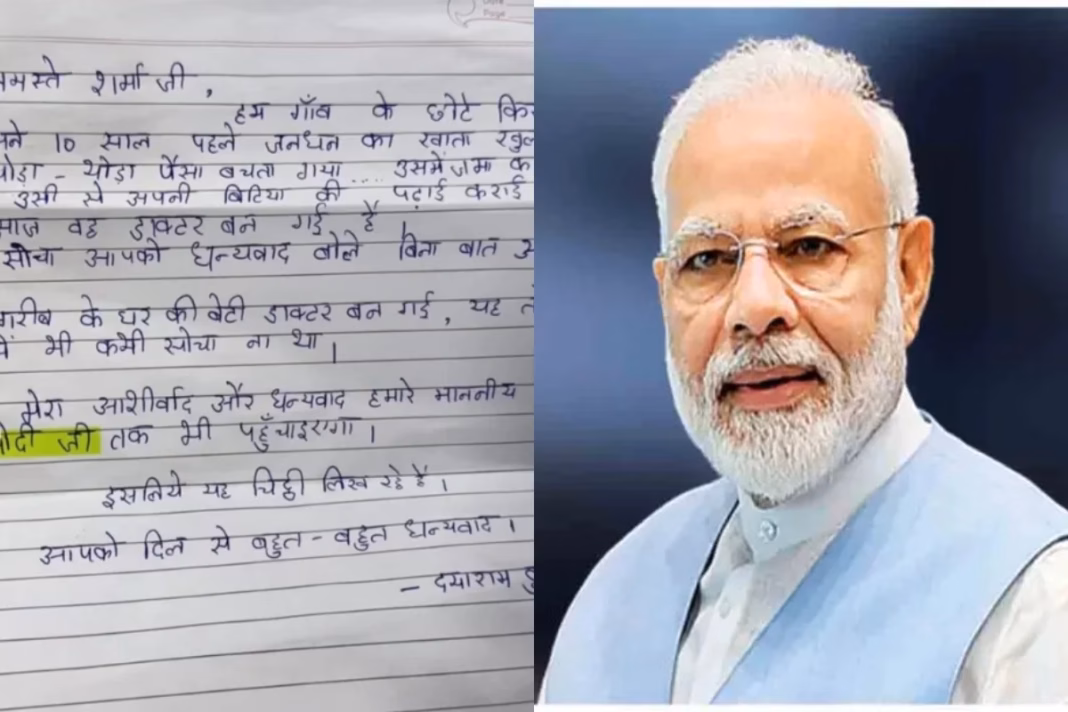 Page
नमस्ते शर्मा जी,
हम गाँव के छोटे
10 साल पहले जनधन का खाता
थोड़ा - थोड़ा पैसा बचता गया.... उसमें जमा
उसी से अपनी बिटिया की पढ़ाई कराई
आज वह डाक्टर बन गई है।
सोचा आपको धन्यवाद बोले बिना बात
गरीब के घर की बेटी डाक्टर बन गई, यह
में भी कभी सोचा ना था।
मेरा आशीर्वाद और धन्यवाद हमारे माननीय
मोदी जी तक भी पहुँचाइएगा।
इसलिये यह चिट्ठी लिख रहे है।
आपको दिल से बहुत - बहुत धन्यवाद।
- दयाराम